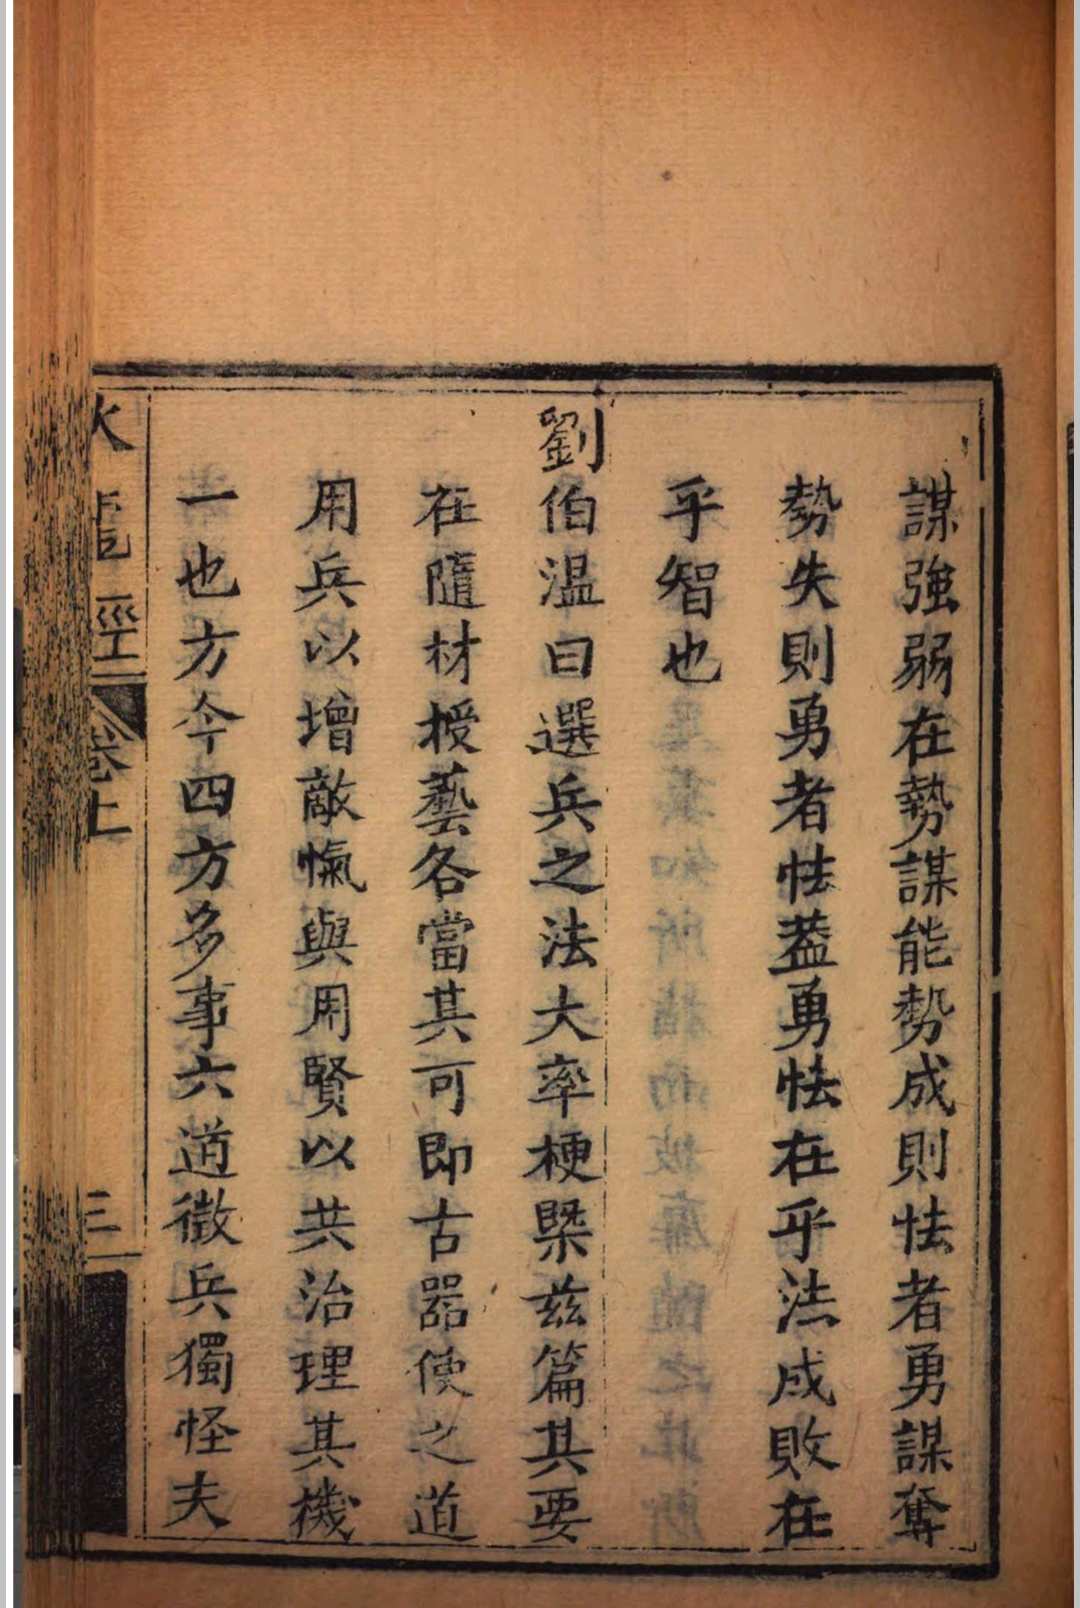 謀強弱在勢謀能勢成則怯者勇謀奪
勢失則勇者怯葢勇怯在乎法成敗在
乎智也
劉伯温曰選兵之法大率梗槩兹篇其要
在隨材授藝各當其可即古器使之道
用兵以增敵愾與用賢以共治理其機
一也方今四方多事六道徵兵獨怪夫
火龍經
卷上
三